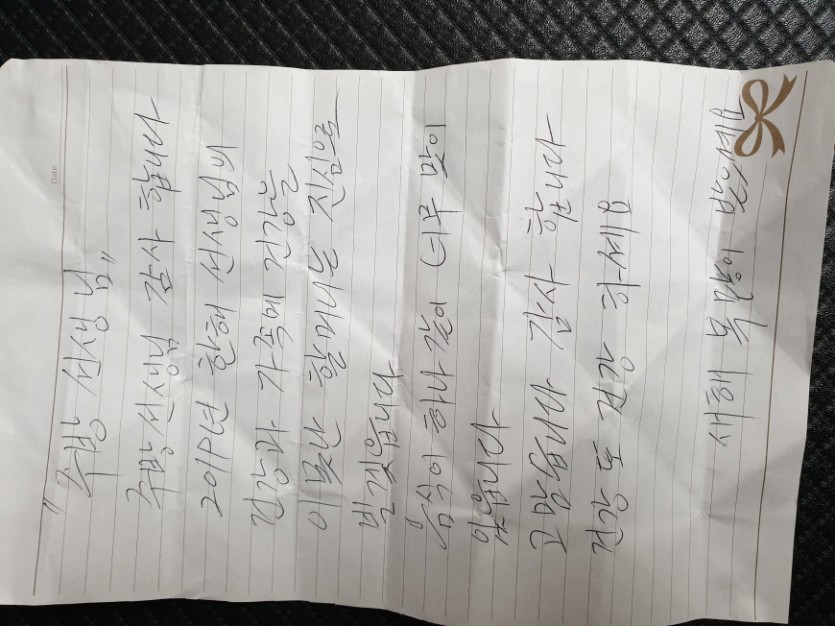 Date
"주방 선생님"
주방선생님 감사 합니다
2019년 한해 선생님의
건강과 가족에 건강을
이 못난 할머니는 진심으로
빌겠습니다
음식이 하나 같이 너무 맛이
있읍니다
고맙습니다 감사 합니다
건강 또 건강 하세요
새해 복많이 받으세요